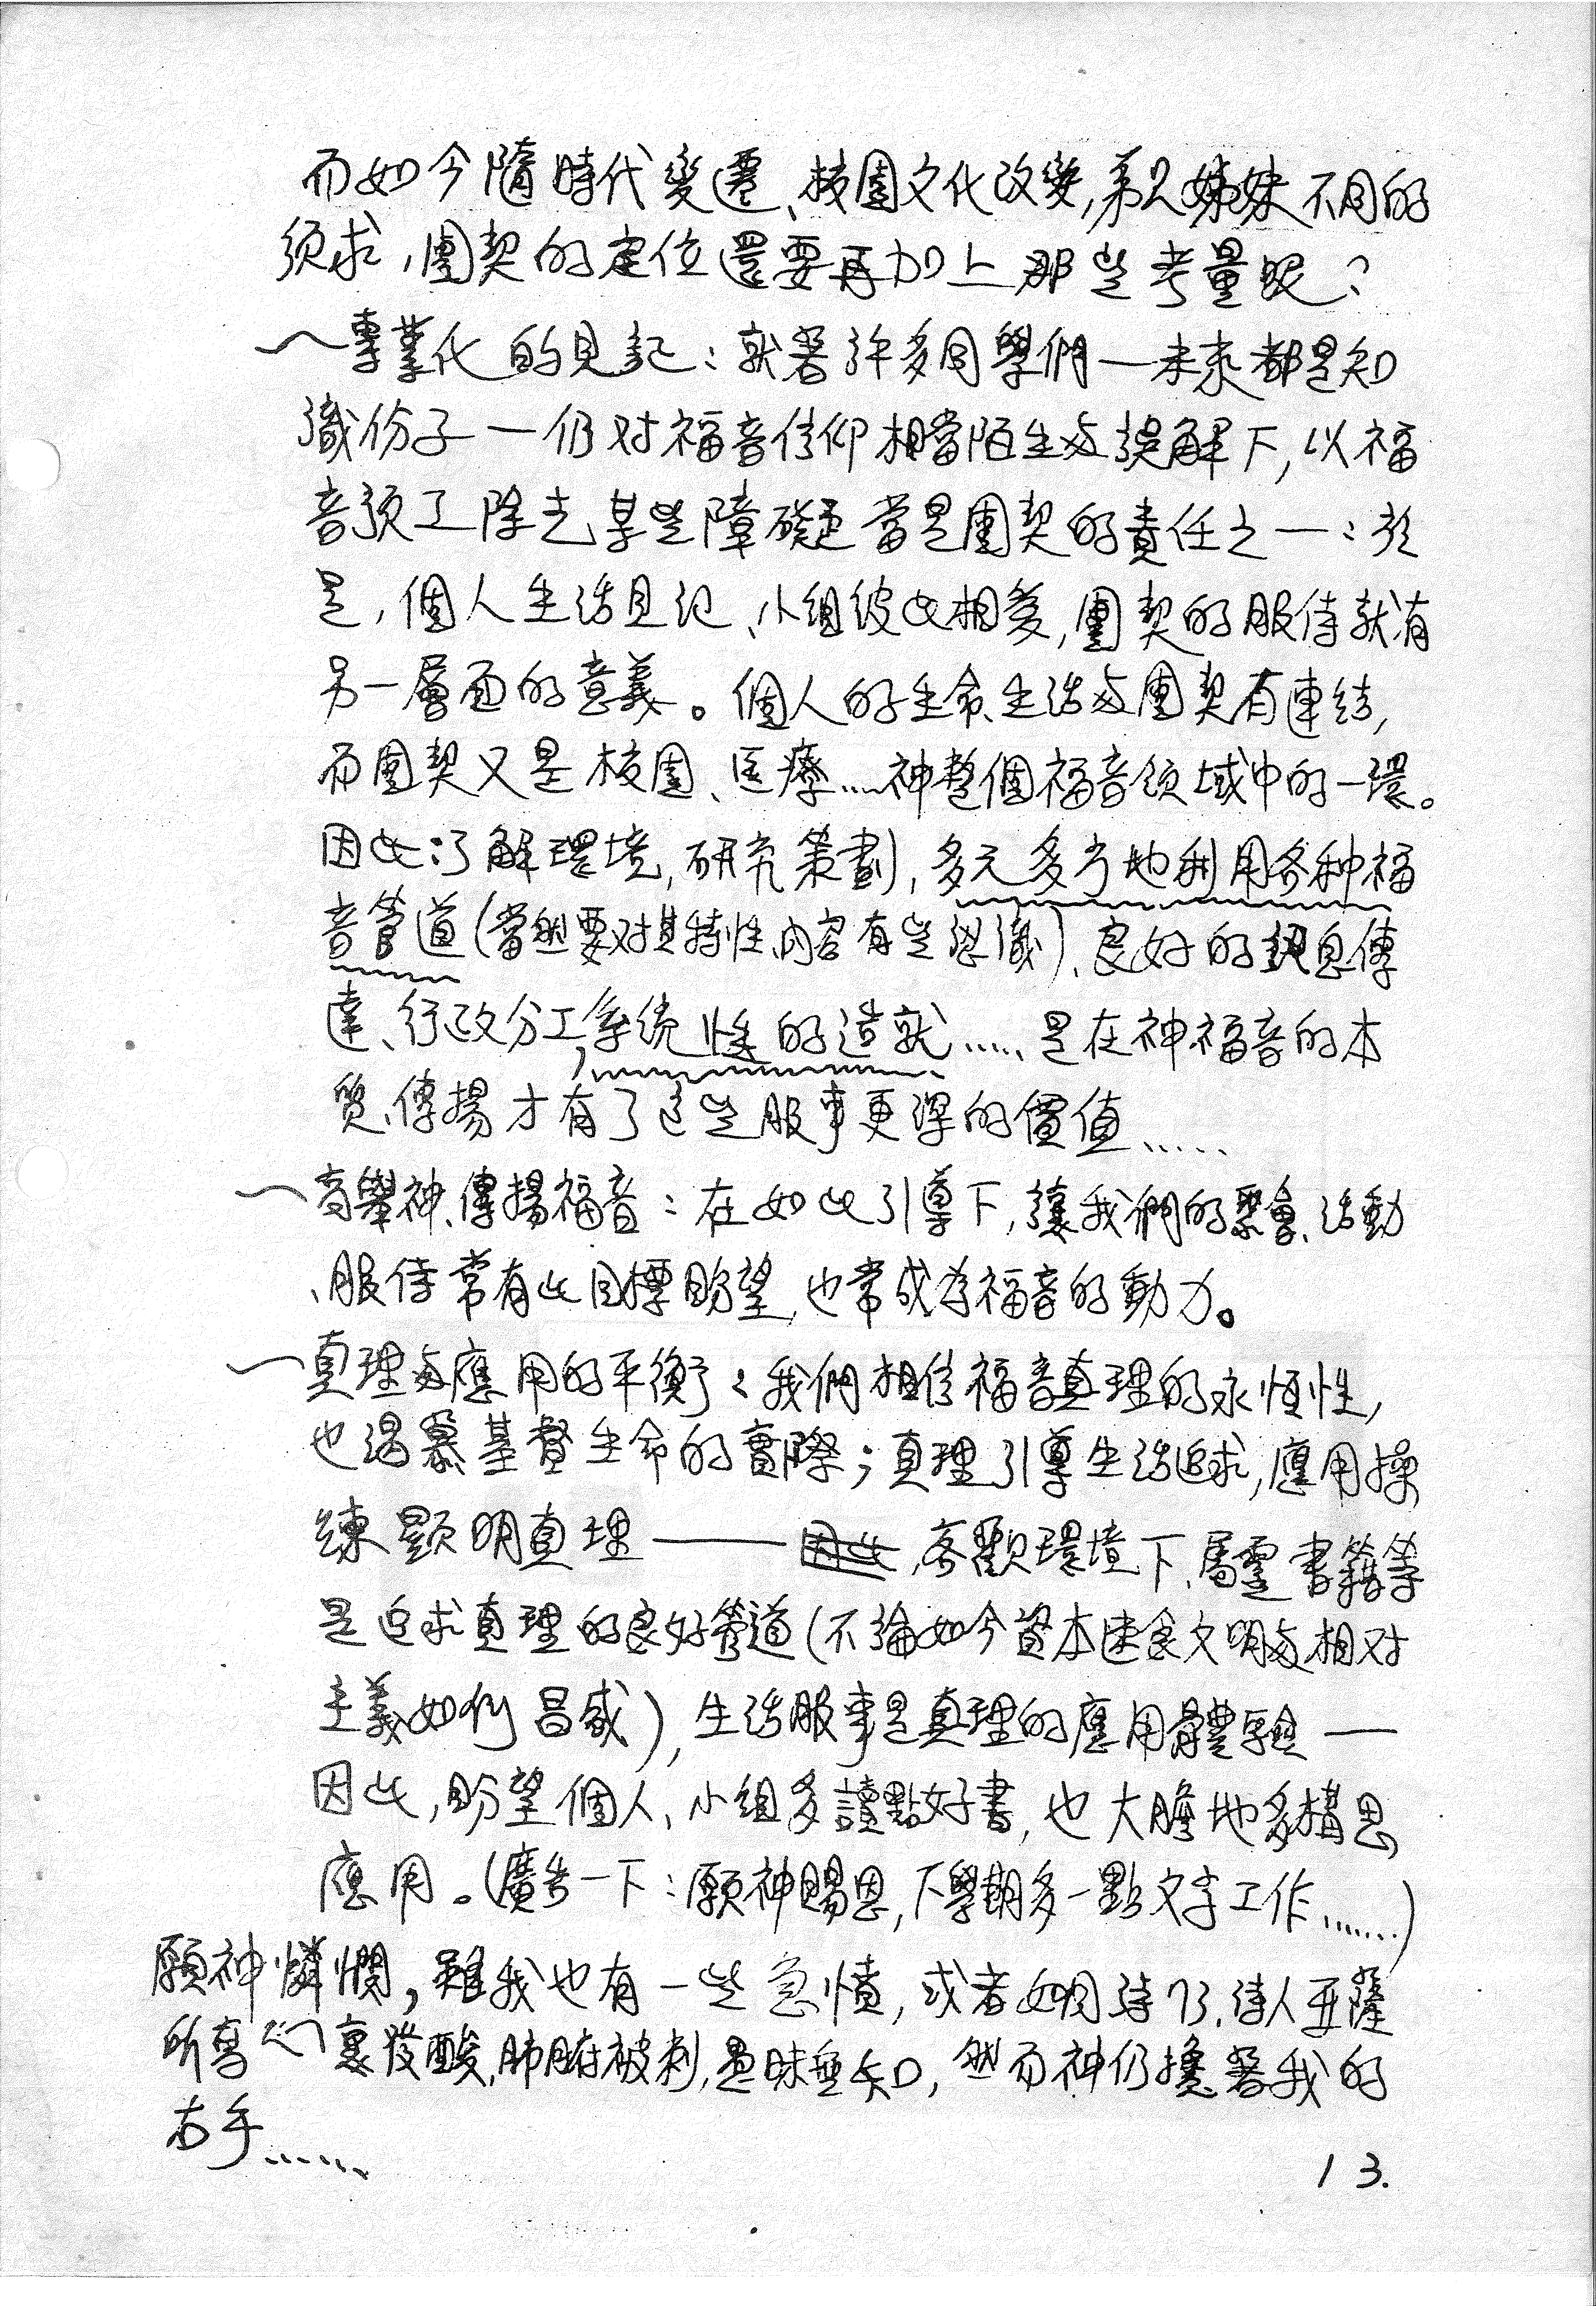 而如今隨時代變遷、校園文化改變,弟兄姊妹不同的
須求,團契的定位還要再加上那些考量呢?
~專業化的見証:就著許多同學們—未來都是知
識份子—仍对福音信仰相當陌生与誤解下,以福
音預工除去某些障礙當是團契的責任之一:於
是,個人生活見証、小組彼此相愛,團契的服侍就有
另一層面的意義。個人的生命、生活与團契有連結,
而團契又是校園、医療……神整個福音領域中的一環。
因此:了解環境,研究策劃,多元多方地利用各种福
音管道(當然要对其特性、內容有些認識)、良好的訊息傳
達、行政分工,系統性的造就……是在神福音的本
質、傳揚才有了這些服事更深的價值……
~高舉神、傳揚福音:在如此引導下,讓我們的聚會、活動
、服侍常有此目標盼望,也常成為福音的動力。
~真理与應用的平衡:我們相信福音真理的永恆性,
也渴慕基督生命的實際;真理引導生活追求,應用操
練顯明真理——因此,客觀環境下、屬靈書籍等
是追求真理的良好管道(不論如今資本速食文明与相对
主義如何昌盛),生活服事是真理的應用體驗—
因此,盼望個人、小組多讀點好書,也大膽地多構思
應用。(廣告一下:願神賜恩,下學期多一點文字工作……)
願神憐憫,雖我也有一些急憤,或者如同詩73,詩人亞薩
所寫心裏發酸,肺腑被刺,愚昧無知,然而神仍攙著我的
右手……
13.